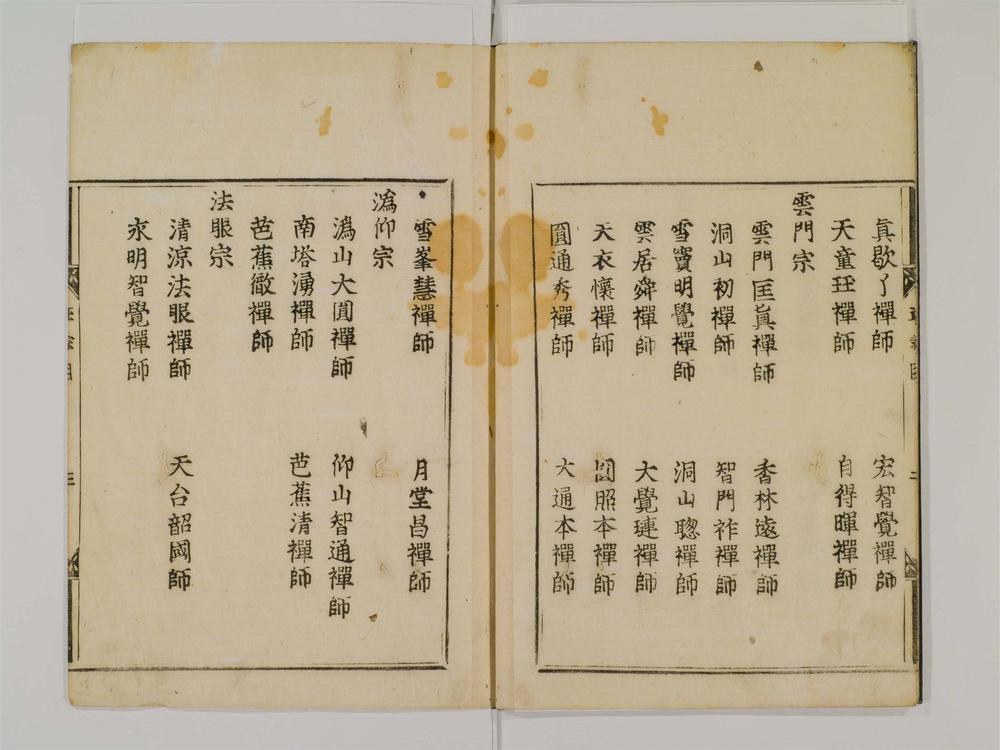 真歇了禪師　宏智覺禪師
天童珏禪師　自得暉禪師
雲門宗
雲門匡眞禪師　香林遠禪師
洞山初禪師　智門祚禪師
雪竇明覺禪師　洞山聰禪師
雲居舜禪師　大覺璉禪師
天衣懷禪師　圓照本禪師
圓通秀禪師　大通本禪師
雪峯慧禪師　月堂昌禪師
潙仰宗
潙山大圓禪師　仰山智通禪師
南塔湧禪師　芭蕉清禪師
芭蕉徹禪師
法眼宗
清凉法眼禪師　天台韶國師
永明智覺禪師